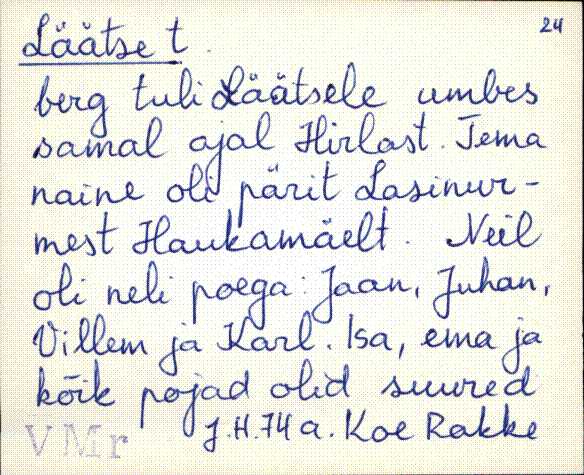 24
Läätse t.
berg tuli Läätsele umbes
samal ajal Hirlast. Tema
naine oli pärit Lasinur-
mest Haukamäelt. Neil
oli neli poega: Jaan, Juhan,
Villem ja Karl. Isa, ema ja
kõik pojad olid suured
J.H. 74 a. Koe Rakke
VMr